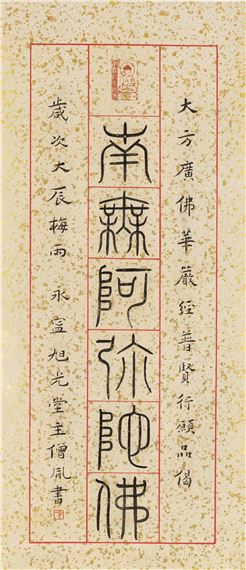 大方廣佛華嚴經普賢行願品偈
南無阿彌陀佛
歲次大辰梅雨 永寧旭光堂主僧胤書